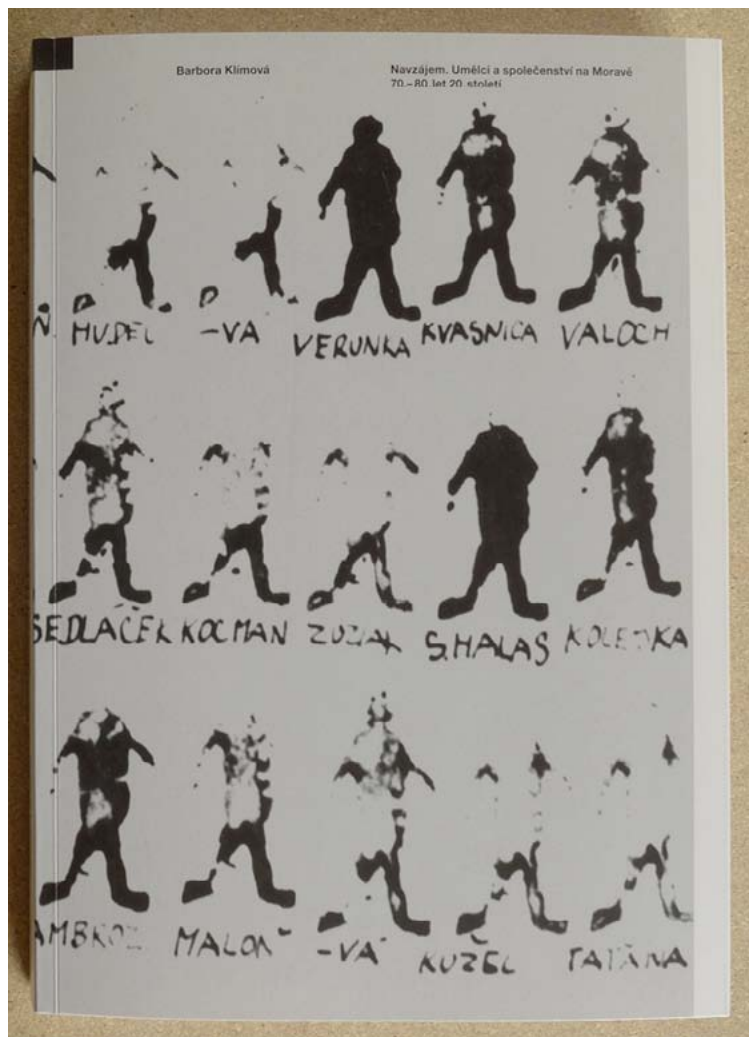 Barbora Klímová
Navzájem. Umělci a společenství na Moravě
70.–80. let 20. století
HUDEC -VA VERUNKA KVASNICA VALOCH
SEDLÁČEK KOCMAN S.HALAS
MALOŇ -VÁ KUŽEL TAŤÁNA